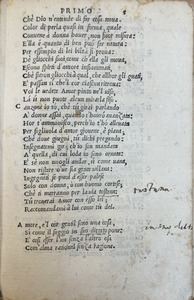 PRIMO
Che Dio n'entende di far cosa nova.
Color di perla quasi in forma, quale
Conviene à donna haver, non fuor misura:
Ella è quanto di ben può far natura;
Per essempio di lei biltà si prova:
De gliocchi suoi, come ch'ella gli mova,
Escono spirti d'amore infiammati,
Che fieron gliocchi à qual, che allhor gli guati,
E passan sì ch'el cor ciascun ritrova:
Voi le vedete Amor pinto nel viso,
Là u' non puote alcun mirarla fiso.
Canzone io so, che tu girai parlando
A' donne assai, quando t'havrò avanzata:
Hor t'ammonisco, perch'io t'ho allevata
Per figliuola d'amor giovene, e piana,
Che dove giugni, tu dichi pregando;
Insegnatemi gir, ch'io son mandata
A' quella, di cui loda io sono ornata:
E se non vuogli andar, sì come vana,
Non ristare ove sia gente villana:
Ingegnati se puoi d'esser palese
Solo con donna, ò con huomo cortese,
Che ti meneranno per la via
Tu troverai Amor con esso lei;
Raccomandami à lui come tu dei.
Amore, e'l cor gentil sono una cosa,
Sì come il saggio in suo dittato pone;
E così esser l'un senza l'altro osa,
Com'alma rational senza ragione.